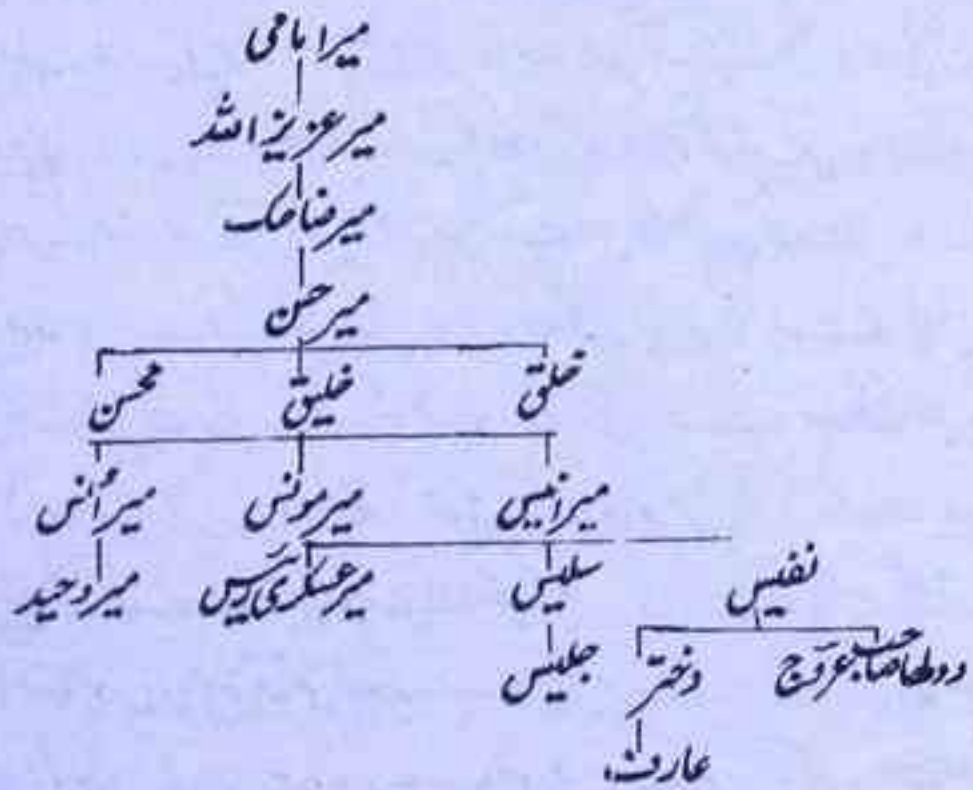 میرامامی
میر عزیز اللہ
میر ضاحک
میر حسن
خلق خلیق محسن
میر انیس میر مونس میر اُنس
نفیس سلیس میر عسکری رئیس میر وحید
دولھا صاحب عروج دختر جلیس
عارف،